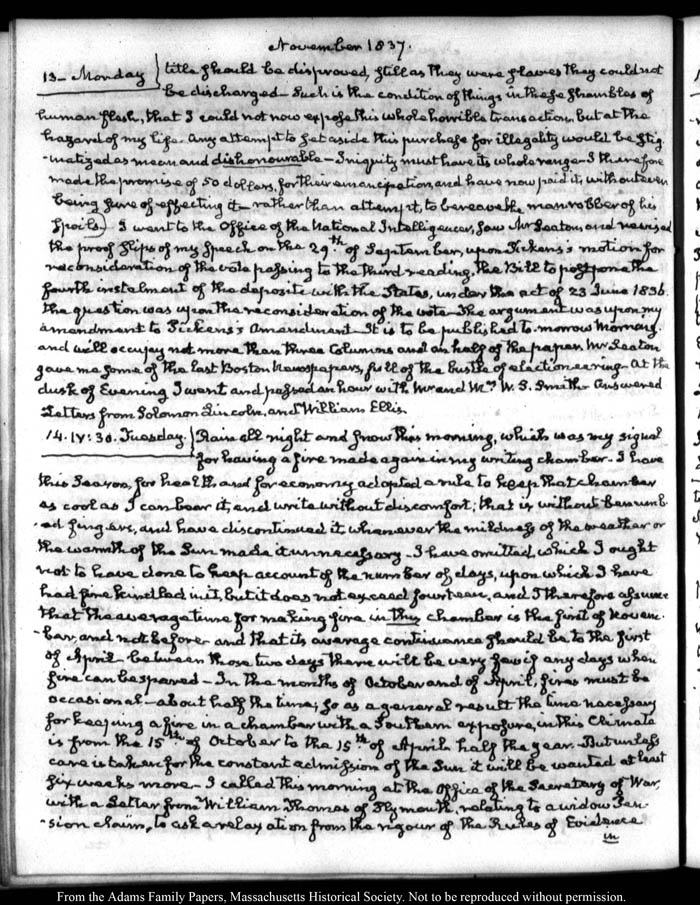 November 1837.
13— Monday } title should be disproved, still as they were slaves they could not
be discharged— Such is the condition of things in these shambles of
human flesh, that I could not now expose this whole horrible transaction but at the
hazard of my life. Any attempt to set aside this purchase for illegality would be stig-
-matized as mean and dishonourable— Iniquity must have its whole range— I therefore
made the promise of 50 dollars, for their emancipation, and have now paid it, without even
being sure of effecting it— rather than attempt, to bereave the man-robber of his
spoils.) I went to the Office of the National Intelligencer, saw Mr Seaton, and revised
the proof slips of my Speech on the 29th of September, upon Pickens's motion for
reconsideration of the vote passing to the third reading, the Bill to postpone the
fourth instalment of the deposite with the States, under the act of 23 June 1836.
the question was upon the reconsideration of the vote— The argument was upon my
amendment to Pickens's Amendment— It is to be published to-morrow Morning.
and will occupy not more than three Columns and an half of the paper. Mr Seaton
gave me some of the last Boston Newspapers, full of the bustle of electioneering— At the
dusk of Evening I went and passed an hour with Mr and Mrs W. S. Smith— Answered
Letters from Solomon Lincoln, and William Ellis.
14. IV:30. Tuesday. } Rain all night and snow this morning, which was my signal
for having a fire made again in my writing chamber— I have
this Season, for health, and for economy adopted a rule to keep that chamber
as cool as I can bear it, and write without discomfort; that is without benumb-
-ed fingers, and have discontinued it whenever the mildness of the weather or
the warmth of the Sun made it unnecessary— I have omitted, which I ought
not to have done to keep account of the number of days, upon which I have
had fire kindled in it, but it does not exceed fourteen, and I therefore assume
that the average time for making fire in this chamber is the first of Novem-
-ber, and not before— and that its average continuance should be to the first
of April— between those two days there will be very few if any days when
fire can be spared— In the months of October and of April, fires must be
occasional— about half the time; so as a general result the time necessary
for keeping a fire in a chamber with a Southern exposure, in this Climate
is from the 15th of October to the 15th of April half the year. But unless
care is taken for the constant admission of the Sun it will be wanted at least
six weeks more— I called this morning at the Office of the Secretary of War,
with a Letter from William Thomas of Plymouth, relating to a widow Pen-
-sion claim, to ask a relaxation from the rigour of the Rules of Evidence
in
From the Adams Family Papers, Massachusetts Historical Society. Not to be reproduced without permission.